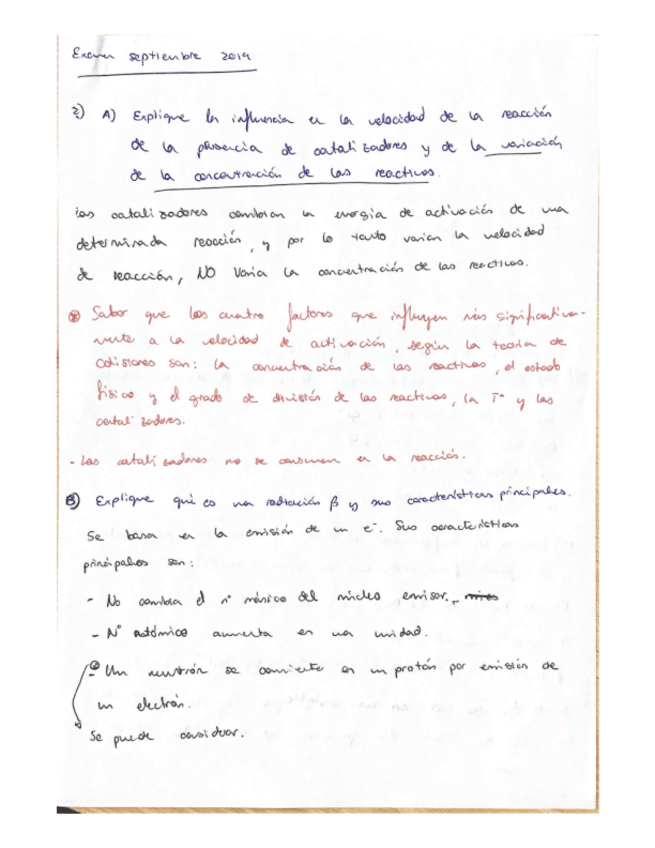 Examen septiembre 2019
2) A) Explique la influencia en la velocidad de la reacción
de la presencia de catalizadores y de la variación
de la concentración de los reactivos.
Los catalizadores cambian la energía de activación de una
determinada reacción, y por lo tanto varían la velocidad
de reacción, NO varia la concentración de los reactivos.
Saber que los cuatro factores que influyen más significativa-
mente a la velocidad de activación, según la teoría de
colisiones son: la concentración de los reactivos, el estado
físico y el grado de división de los reactivos, la Tª y los
catalizadores.
- Los catalizadores no se consumen en la reacción.
B) Explique qué es una radiación β y sus características principales.
Se basa en la emisión de un e⁻. Sus características
principales son:
- No cambia el nº másico del núcleo emisor.
- Nº atómico aumenta en una unidad.
Un neutrón se convierte en un protón por emisión de
un electrón.
Se puede considerar.